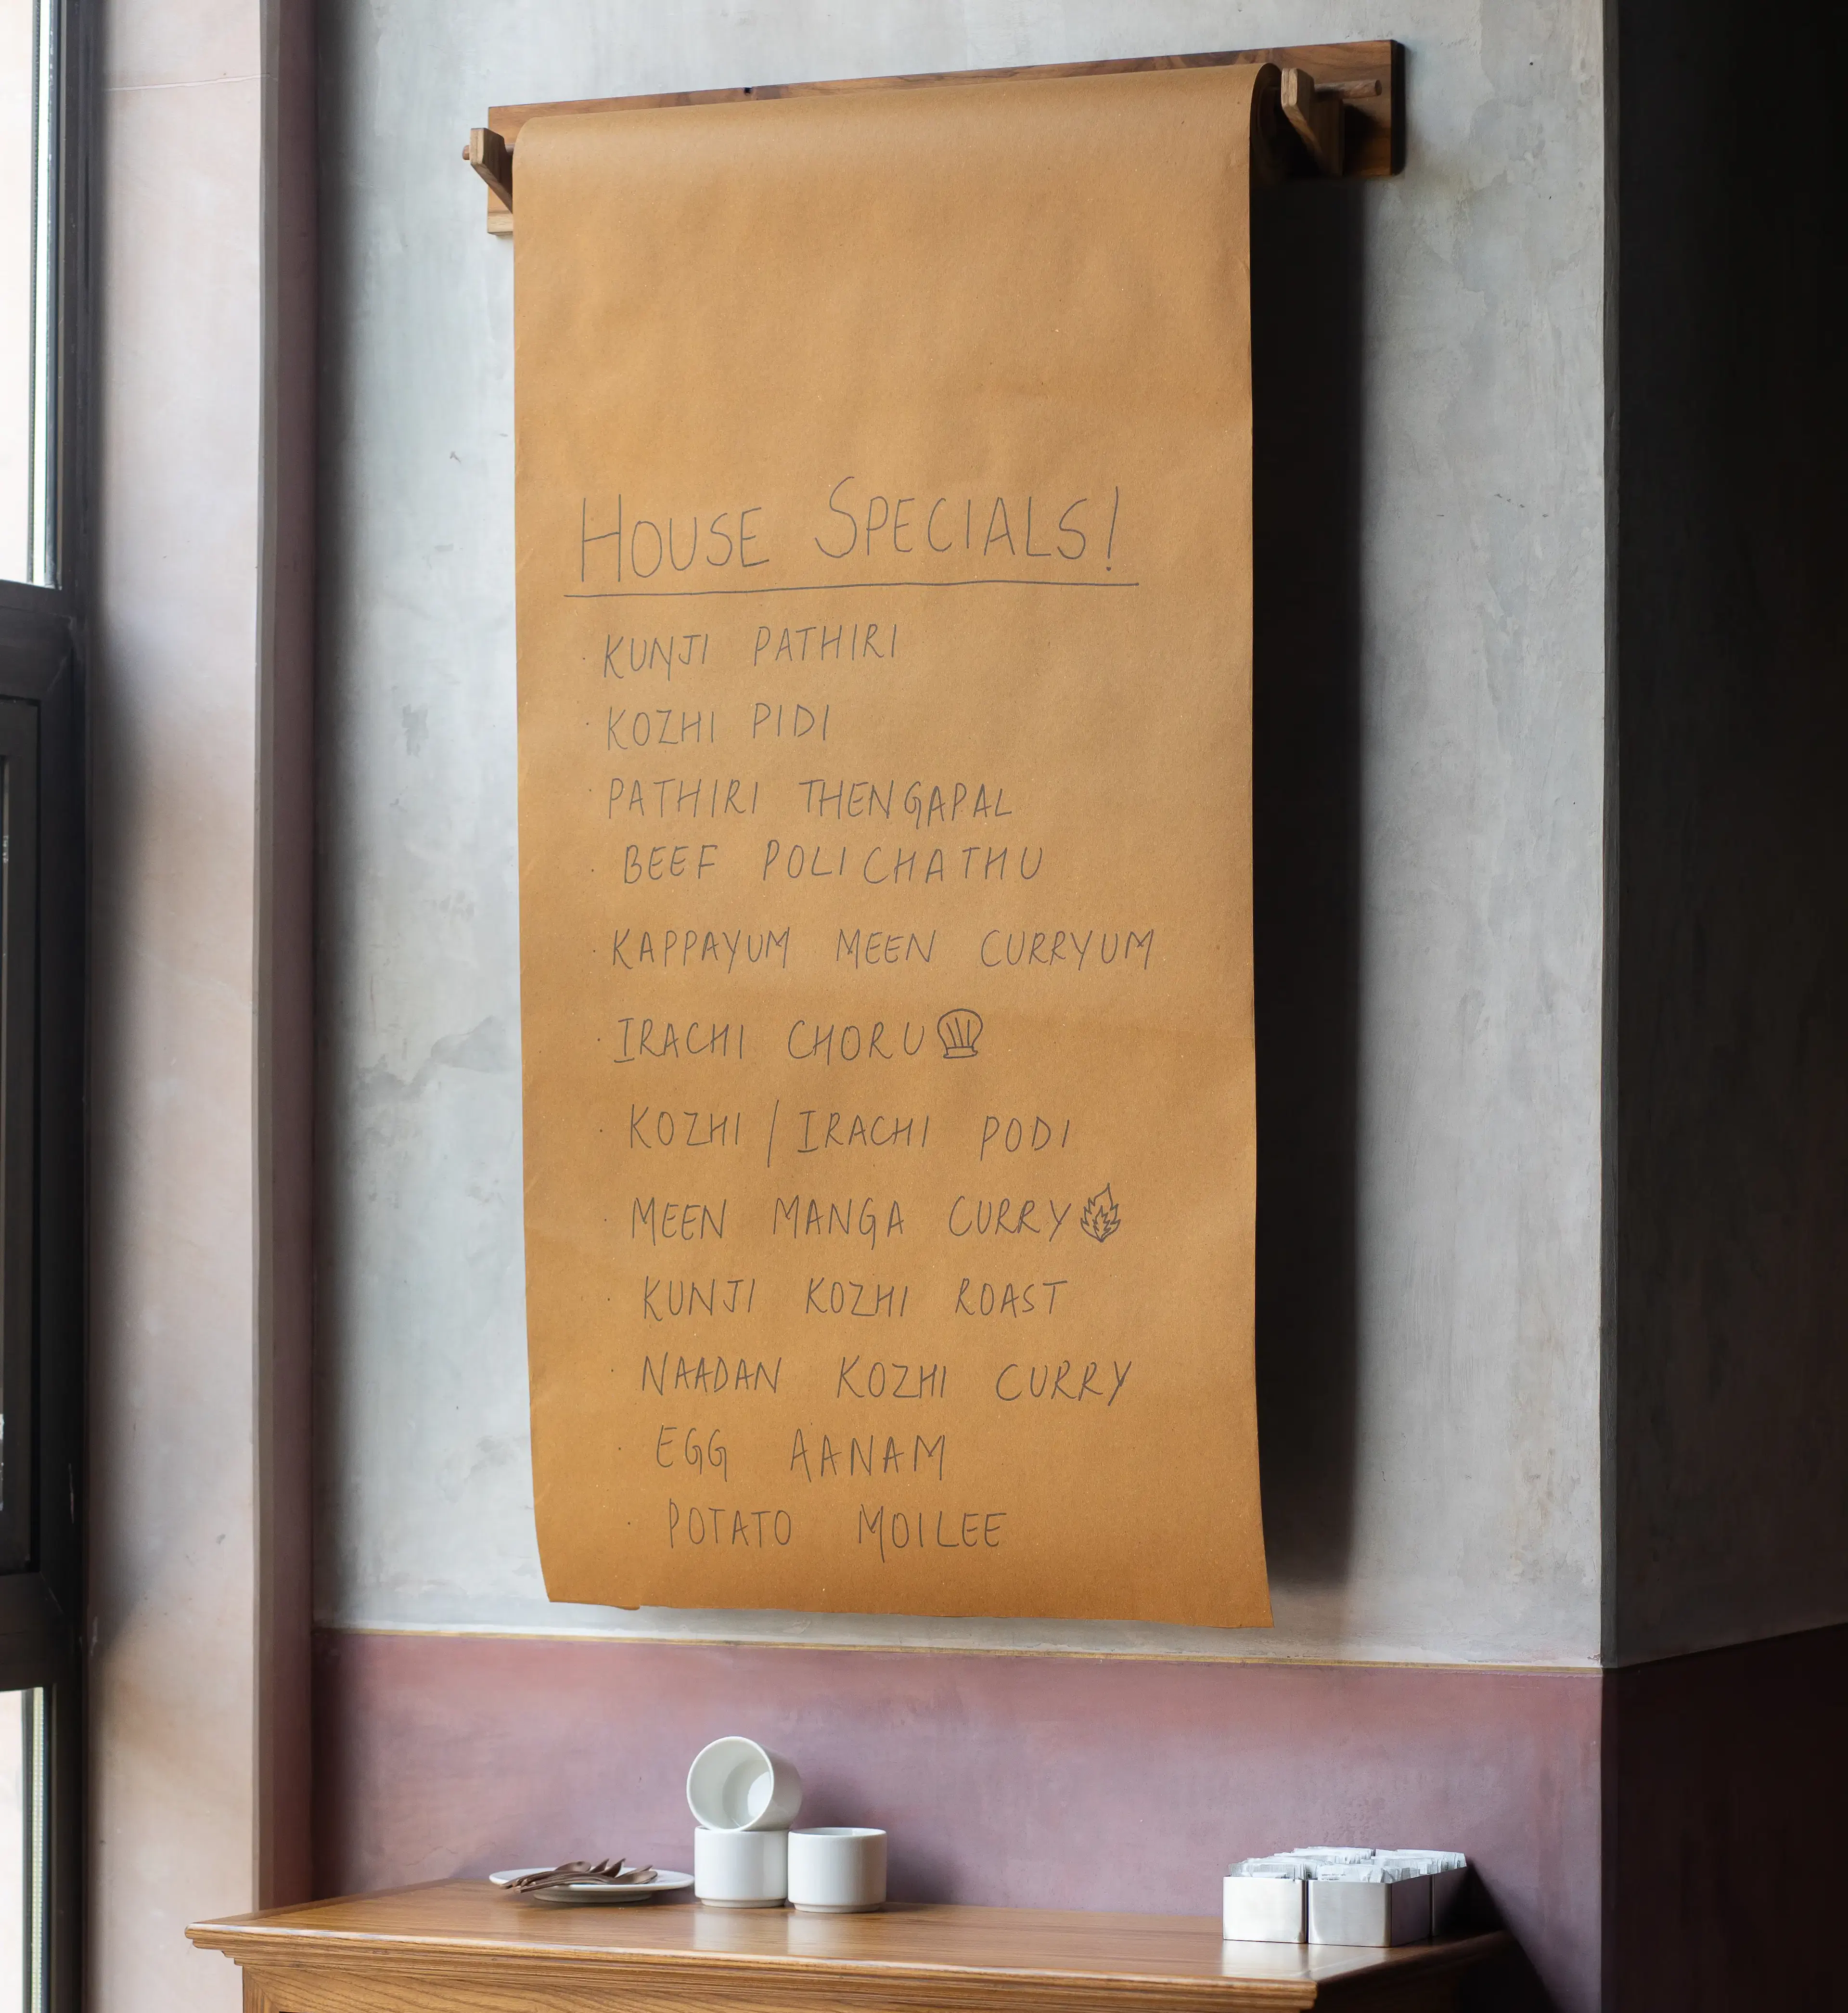 HOUSE SPECIALS!
· KUNJI PATHIRI
· KOZHI PIDI
· PATHIRI THENGAPAL
· BEEF POLICHATHU
· KAPPAYUM MEEN CURRYUM
· IRACHI CHORU
· KOZHI / IRACHI PODI
· MEEN MANGA CURRY
· KUNJI KOZHI ROAST
· NAADAN KOZHI CURRY
· EGG AANAM
· POTATO MOILEE